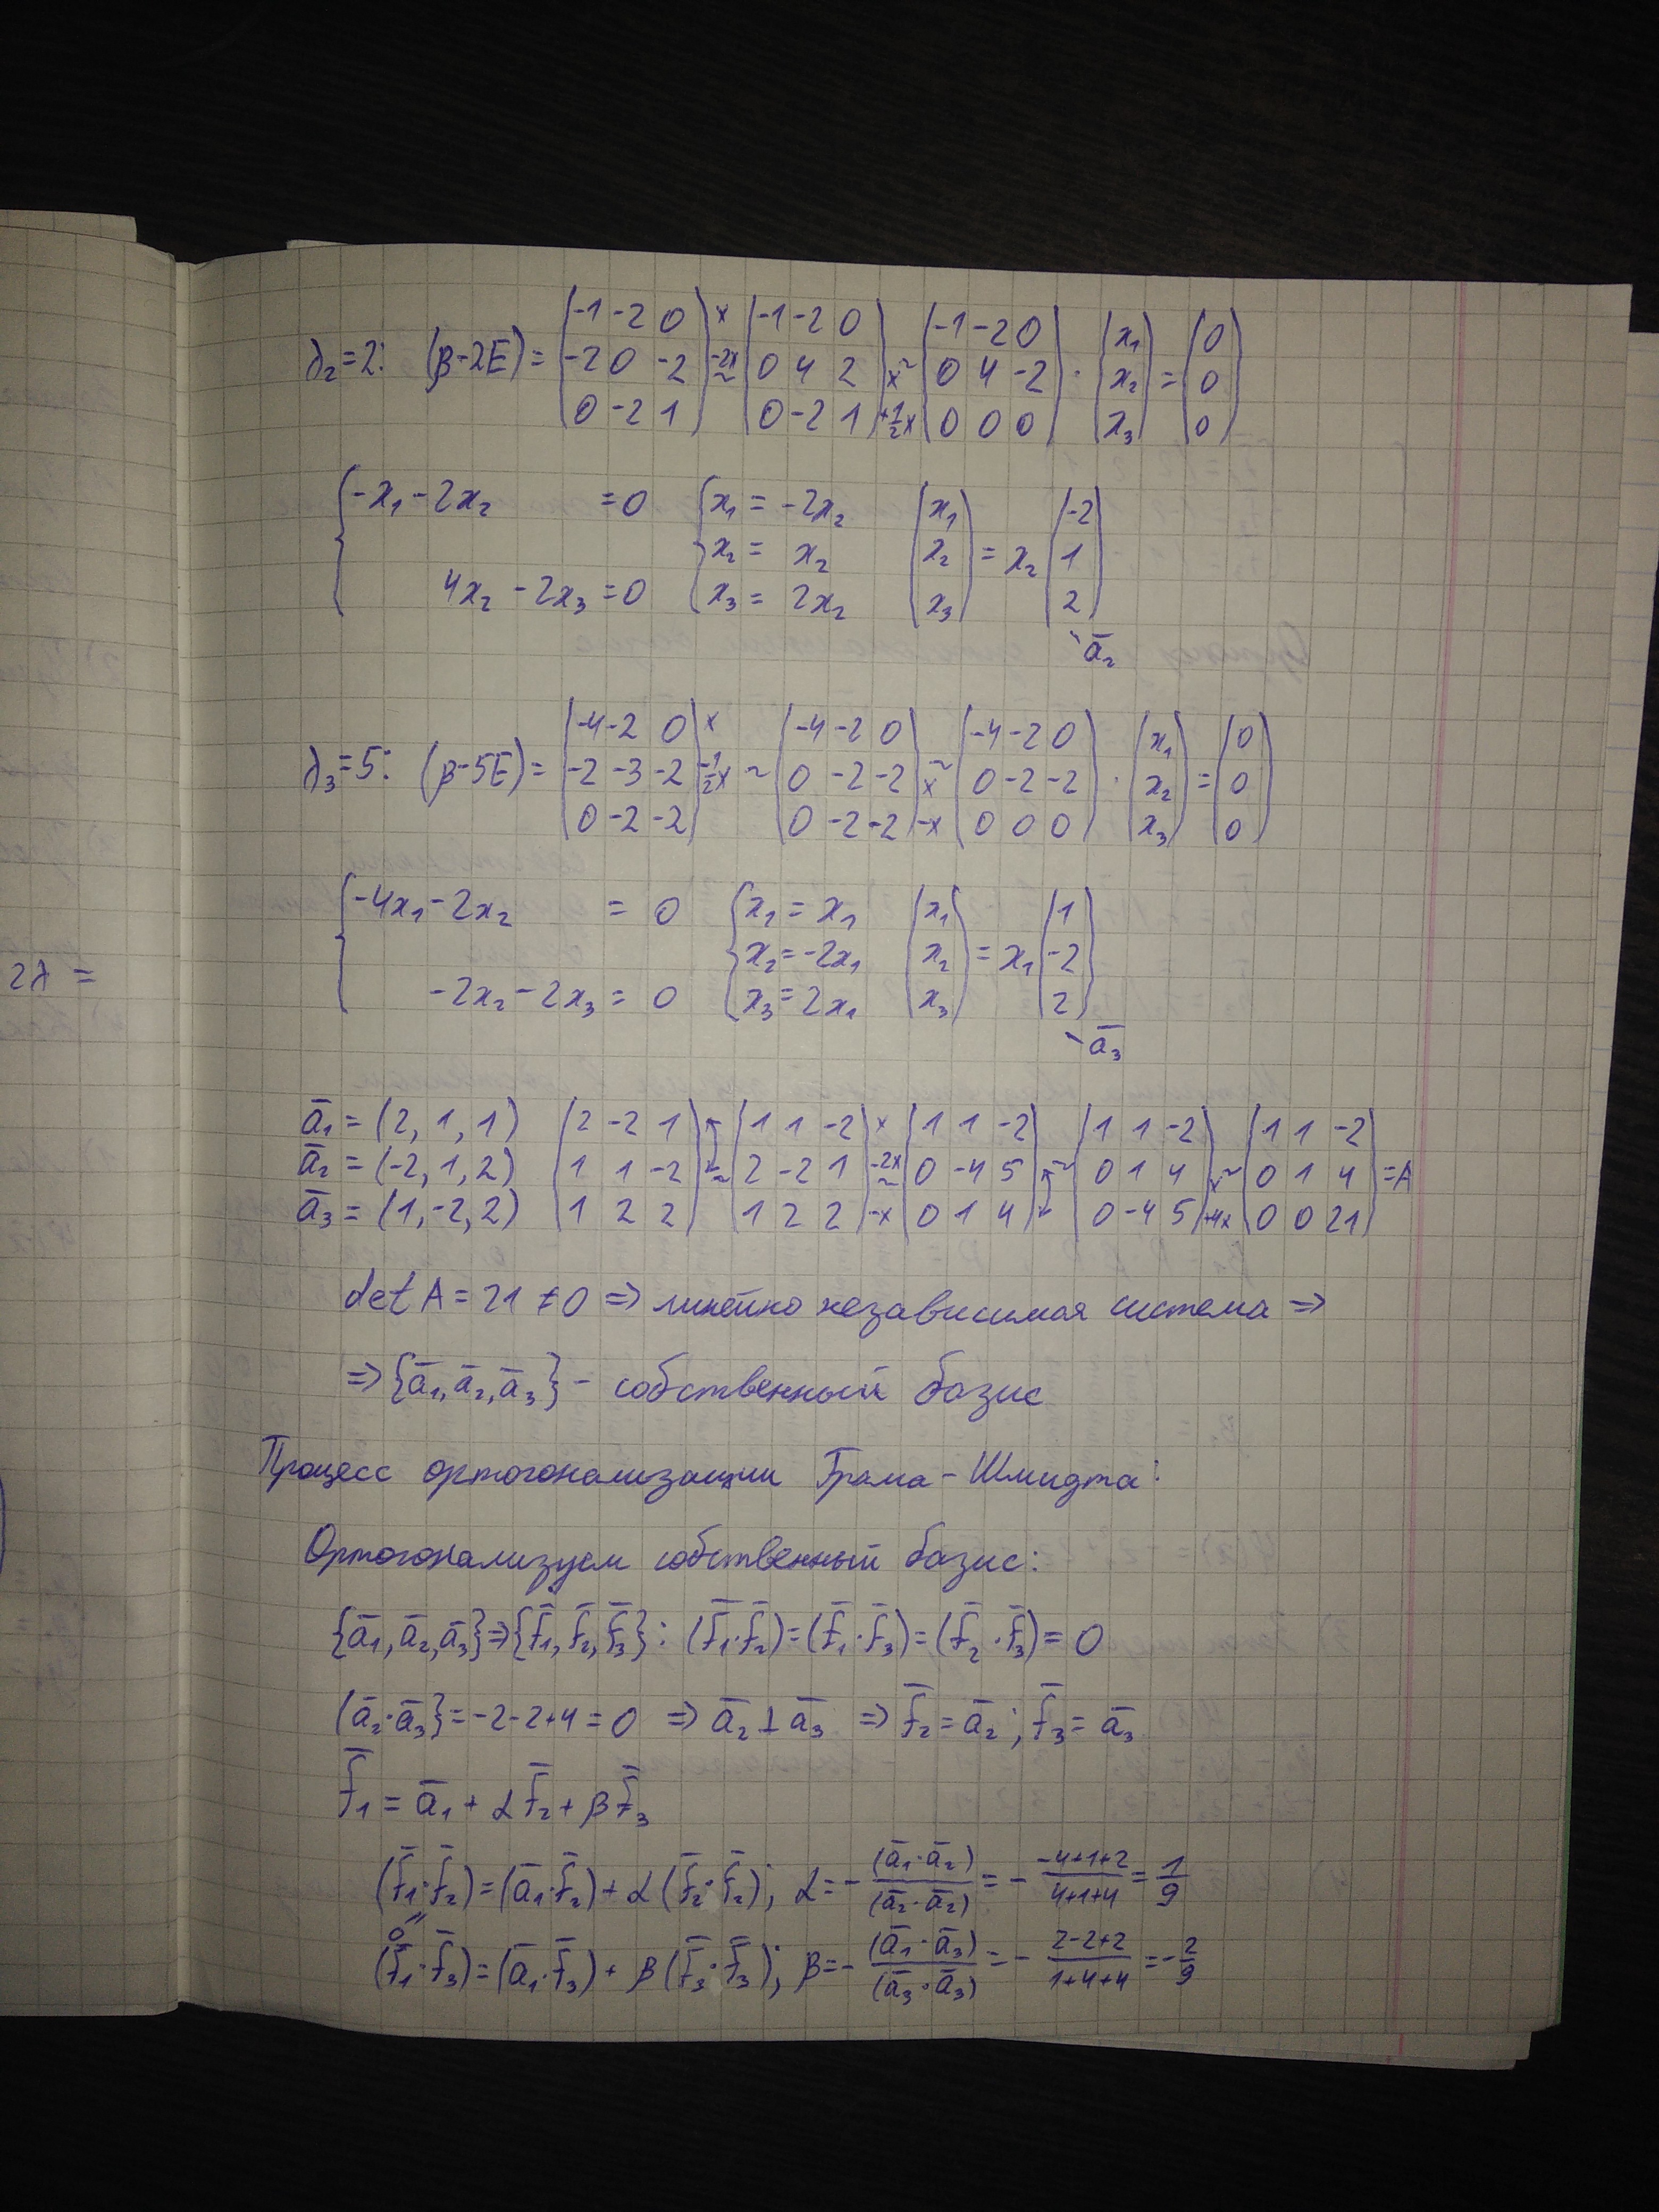 λ₂=2: (β-2E) = (-1 -2 0; -2 0 -2; 0 -2 1) x -2x ~ (-1 -2 0; 0 4 2; 0 -2 1) x +1/2x ~ (-1 -2 0; 0 4 -2; 0 0 0) · (x₁; x₂; x₃) = (0; 0; 0)
{-x₁-2x₂ =0; 4x₂-2x₃=0 {x₁=-2x₂; x₂= x₂; x₃= 2x₂ (x₁; x₂; x₃) = x₂ (-2; 1; 2)
a̅₂
λ₃=5: (β-5E) = (-4 -2 0; -2 -3 -2; 0 -2 -2) x -1/2x ~ (-4 -2 0; 0 -2 -2; 0 -2 -2) x -x ~ (-4 -2 0; 0 -2 -2; 0 0 0) · (x₁; x₂; x₃) = (0; 0; 0)
{-4x₁-2x₂ = 0; -2x₂-2x₃ = 0 {x₁=x₁; x₂=-2x₁; x₃=2x₁ (x₁; x₂; x₃) = x₁ (1; -2; 2)
2λ =
a̅₃
a̅₁ = (2, 1, 1) (2 -2 1) (1 1 -2) x (1 1 -2) (1 1 -2) (1 1 -2)
a̅₂ = (-2, 1, 2) (1 1 -2) ~ (2 -2 1) -2x ~ (0 -4 5) ~ (0 1 4) x ~ (0 1 4) = A
a̅₃ = (1, -2, 2) (1 2 2) (1 2 2) -x (0 1 4) (0 -4 5) +4x (0 0 21)
det A = 21 ≠ 0 ⇒ линейно независимая система ⇒
⇒ {a̅₁, a̅₂, a̅₃} - собственный базис
Процесс ортогонализации Грама-Шмидта:
Ортогонализуем собственный базис:
{a̅₁, a̅₂, a̅₃} ⇒ {f̅₁, f̅₂, f̅₃} : (f̅₁·f̅₂) = (f̅₁·f̅₃) = (f̅₂·f̅₃) = 0
(a̅₂·a̅₃} = -2-2+4 = 0 ⇒ a̅₂ ⊥ a̅₃ ⇒ f̅₂ = a̅₂; f̅₃ = a̅₃
f̅₁ = a̅₁ + αf̅₂ + βf̅₃
(f̅₁·f̅₂) = (a̅₁·f̅₂) + α(f̅₂·f̅₂); α = - (a̅₁·a̅₂)/(a̅₂·a̅₂) = - (-4+1+2)/(4+1+4) = 1/9
0"
(f̅₁·f̅₃) = (a̅₁·f̅₃) + β(f̅₃·f̅₃); β = - (a̅₁·a̅₃)/(a̅₃·a̅₃) = - (2-2+2)/(1+4+4) = -2/9